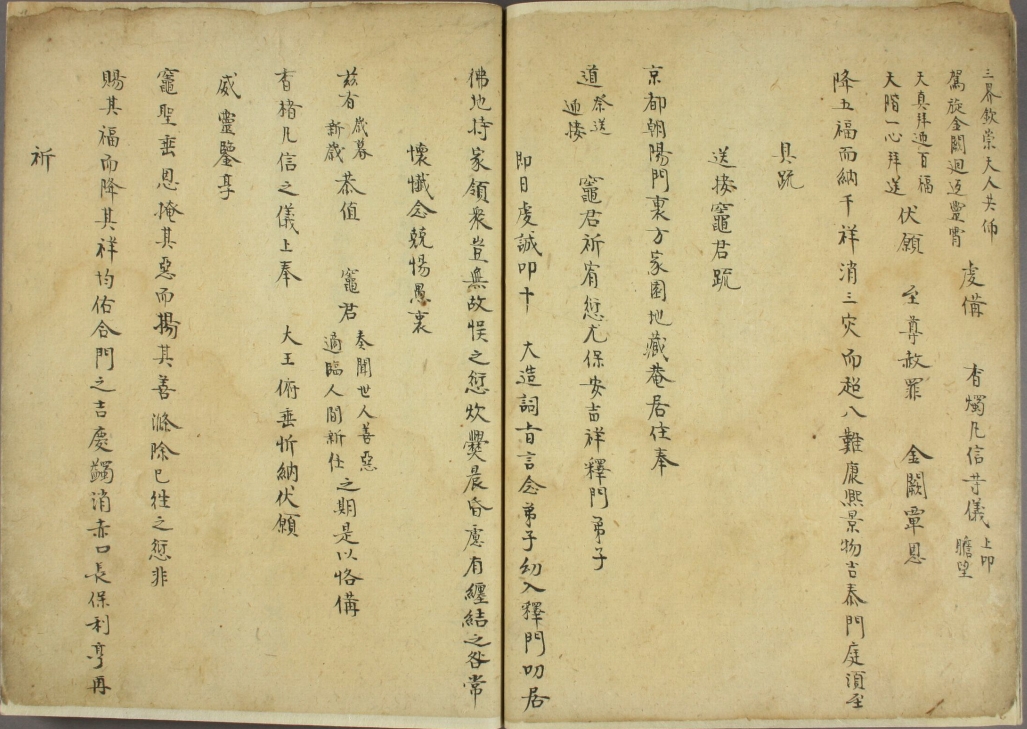 三界欽崇天人共仰
駕旋金闕迴返靈霄 虔備 香燭凡信芽儀 上叩
瞻望
天真拜迎百福
天階一心拜送 伏願 至尊赦罪 金闕覃恩
降五福而納千祥消三灾而超八難康熙景物吉泰門庭須至
具疏
送接竈君䟽
京都朝陽門裏方家園地藏菴居住奉
道 祭送
迎接 竈君祈宥愆尤保安吉祥釋門弟子
即日虔誠叩十 大造詞旨言念弟子幼入釋門叨居
佛地持家領衆豈無故悞之愆炊爨晨昏慮有纏結之咎常
懷懺念兢惕愚衷
兹有 歲暮
新歲 恭值 竈君 奏聞世人善惡
適臨人間新仕 之期是以恪備
香楮凡信之儀上奉 大王俯垂忻納伏願
威靈鑒享
竈聖垂恩掩其惡而揚其善滌除已徃之愆非
賜其福而降其祥均佑合門之吉慶蠲消赤口長保利亨再
祈